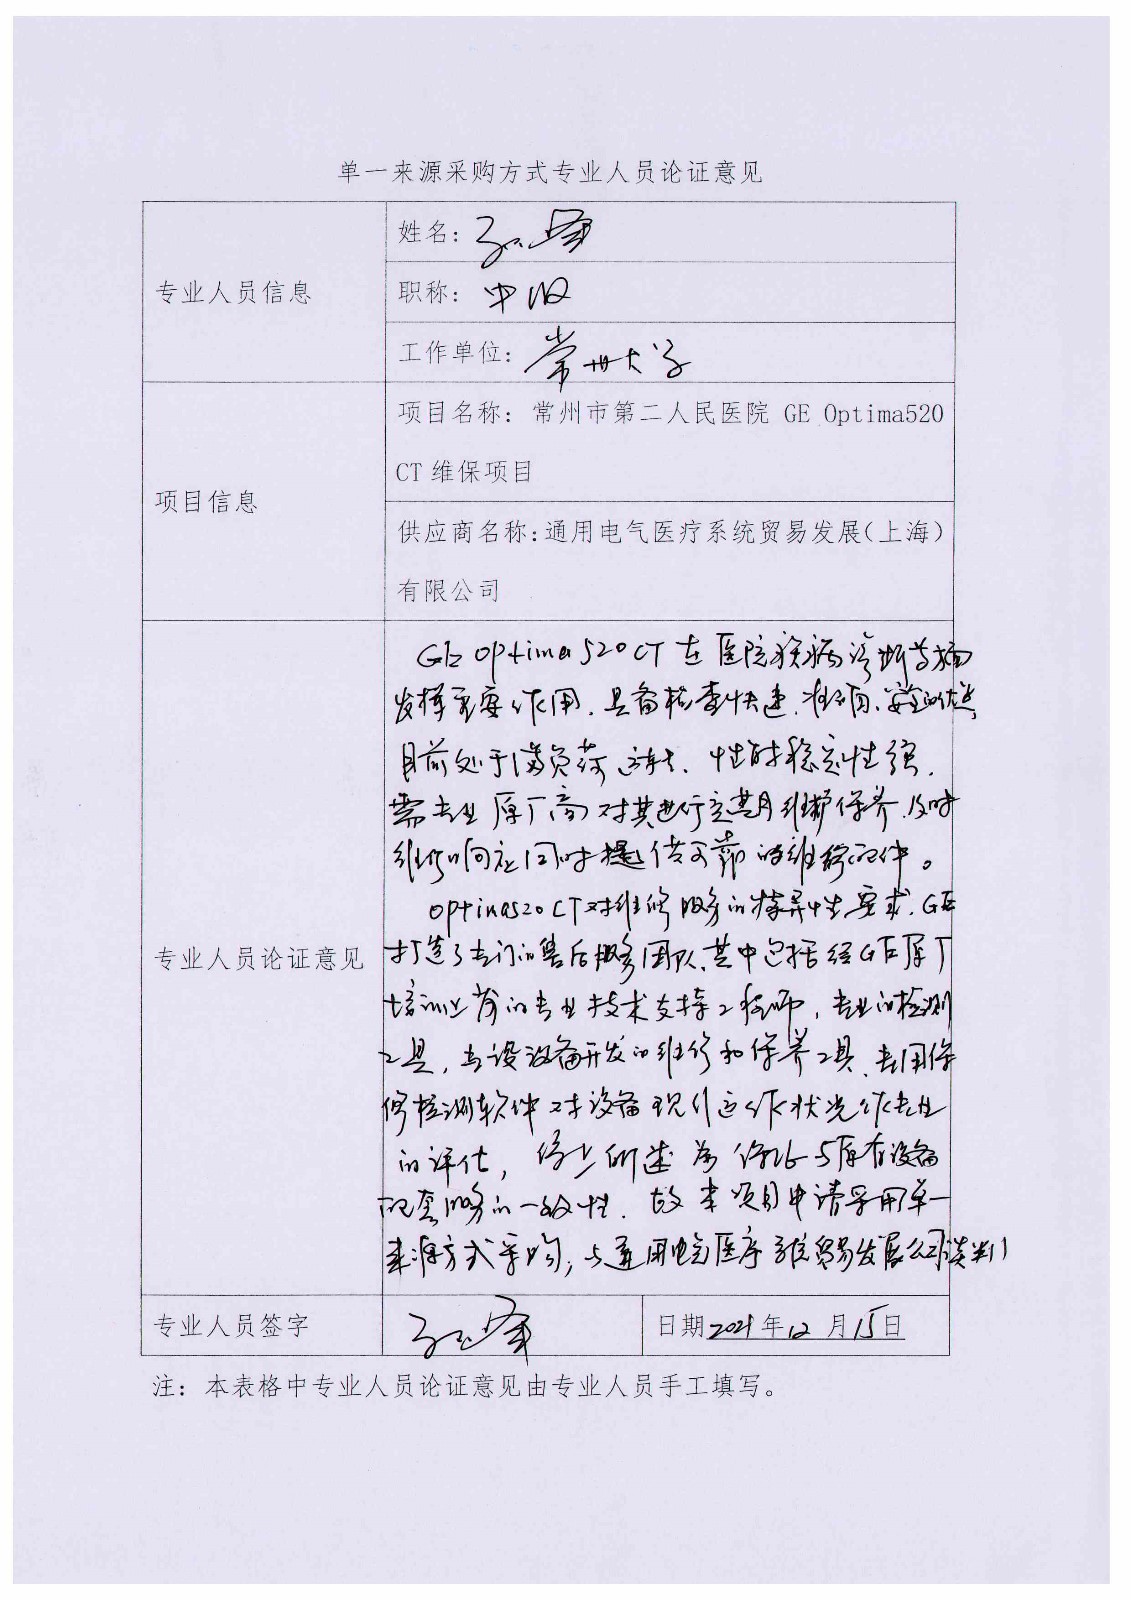 单一来源采购方式专业人员论证意见
专业人员信息
姓名：
职称：中级
工作单位：常州大学
项目信息
项目名称：常州市第二人民医院 GE Optima520
CT维保项目
供应商名称：通用电气医疗系统贸易发展（上海）
有限公司
专业人员论证意见
GE Optima 520 CT 在医院疾病诊断等方面
发挥重要作用，具备检查快速、准确、安全的优势，
目前处于满负荷运转、性能稳定性强，
需专业原厂商对其进行定期维护保养，及时
维修响应同时提供可靠的维修配件。
Optima520 CT对维修服务的特异性要求，GE
打造了专门的售后服务团队，其中包括经GE原厂
培训上岗的专业技术支持工程师，专业的检测
工具，专设设备开发的维修和保养工具，专用保
修检测软件对设备现行运作状况作专业
的评估，综上所述为保证与原有设备
配套服务的一致性，故本项目申请采用单一
来源方式采购，与通用电气医疗系统贸易发展公司谈判
专业人员签字
日期2021年12月15日
注：本表格中专业人员论证意见由专业人员手工填写。